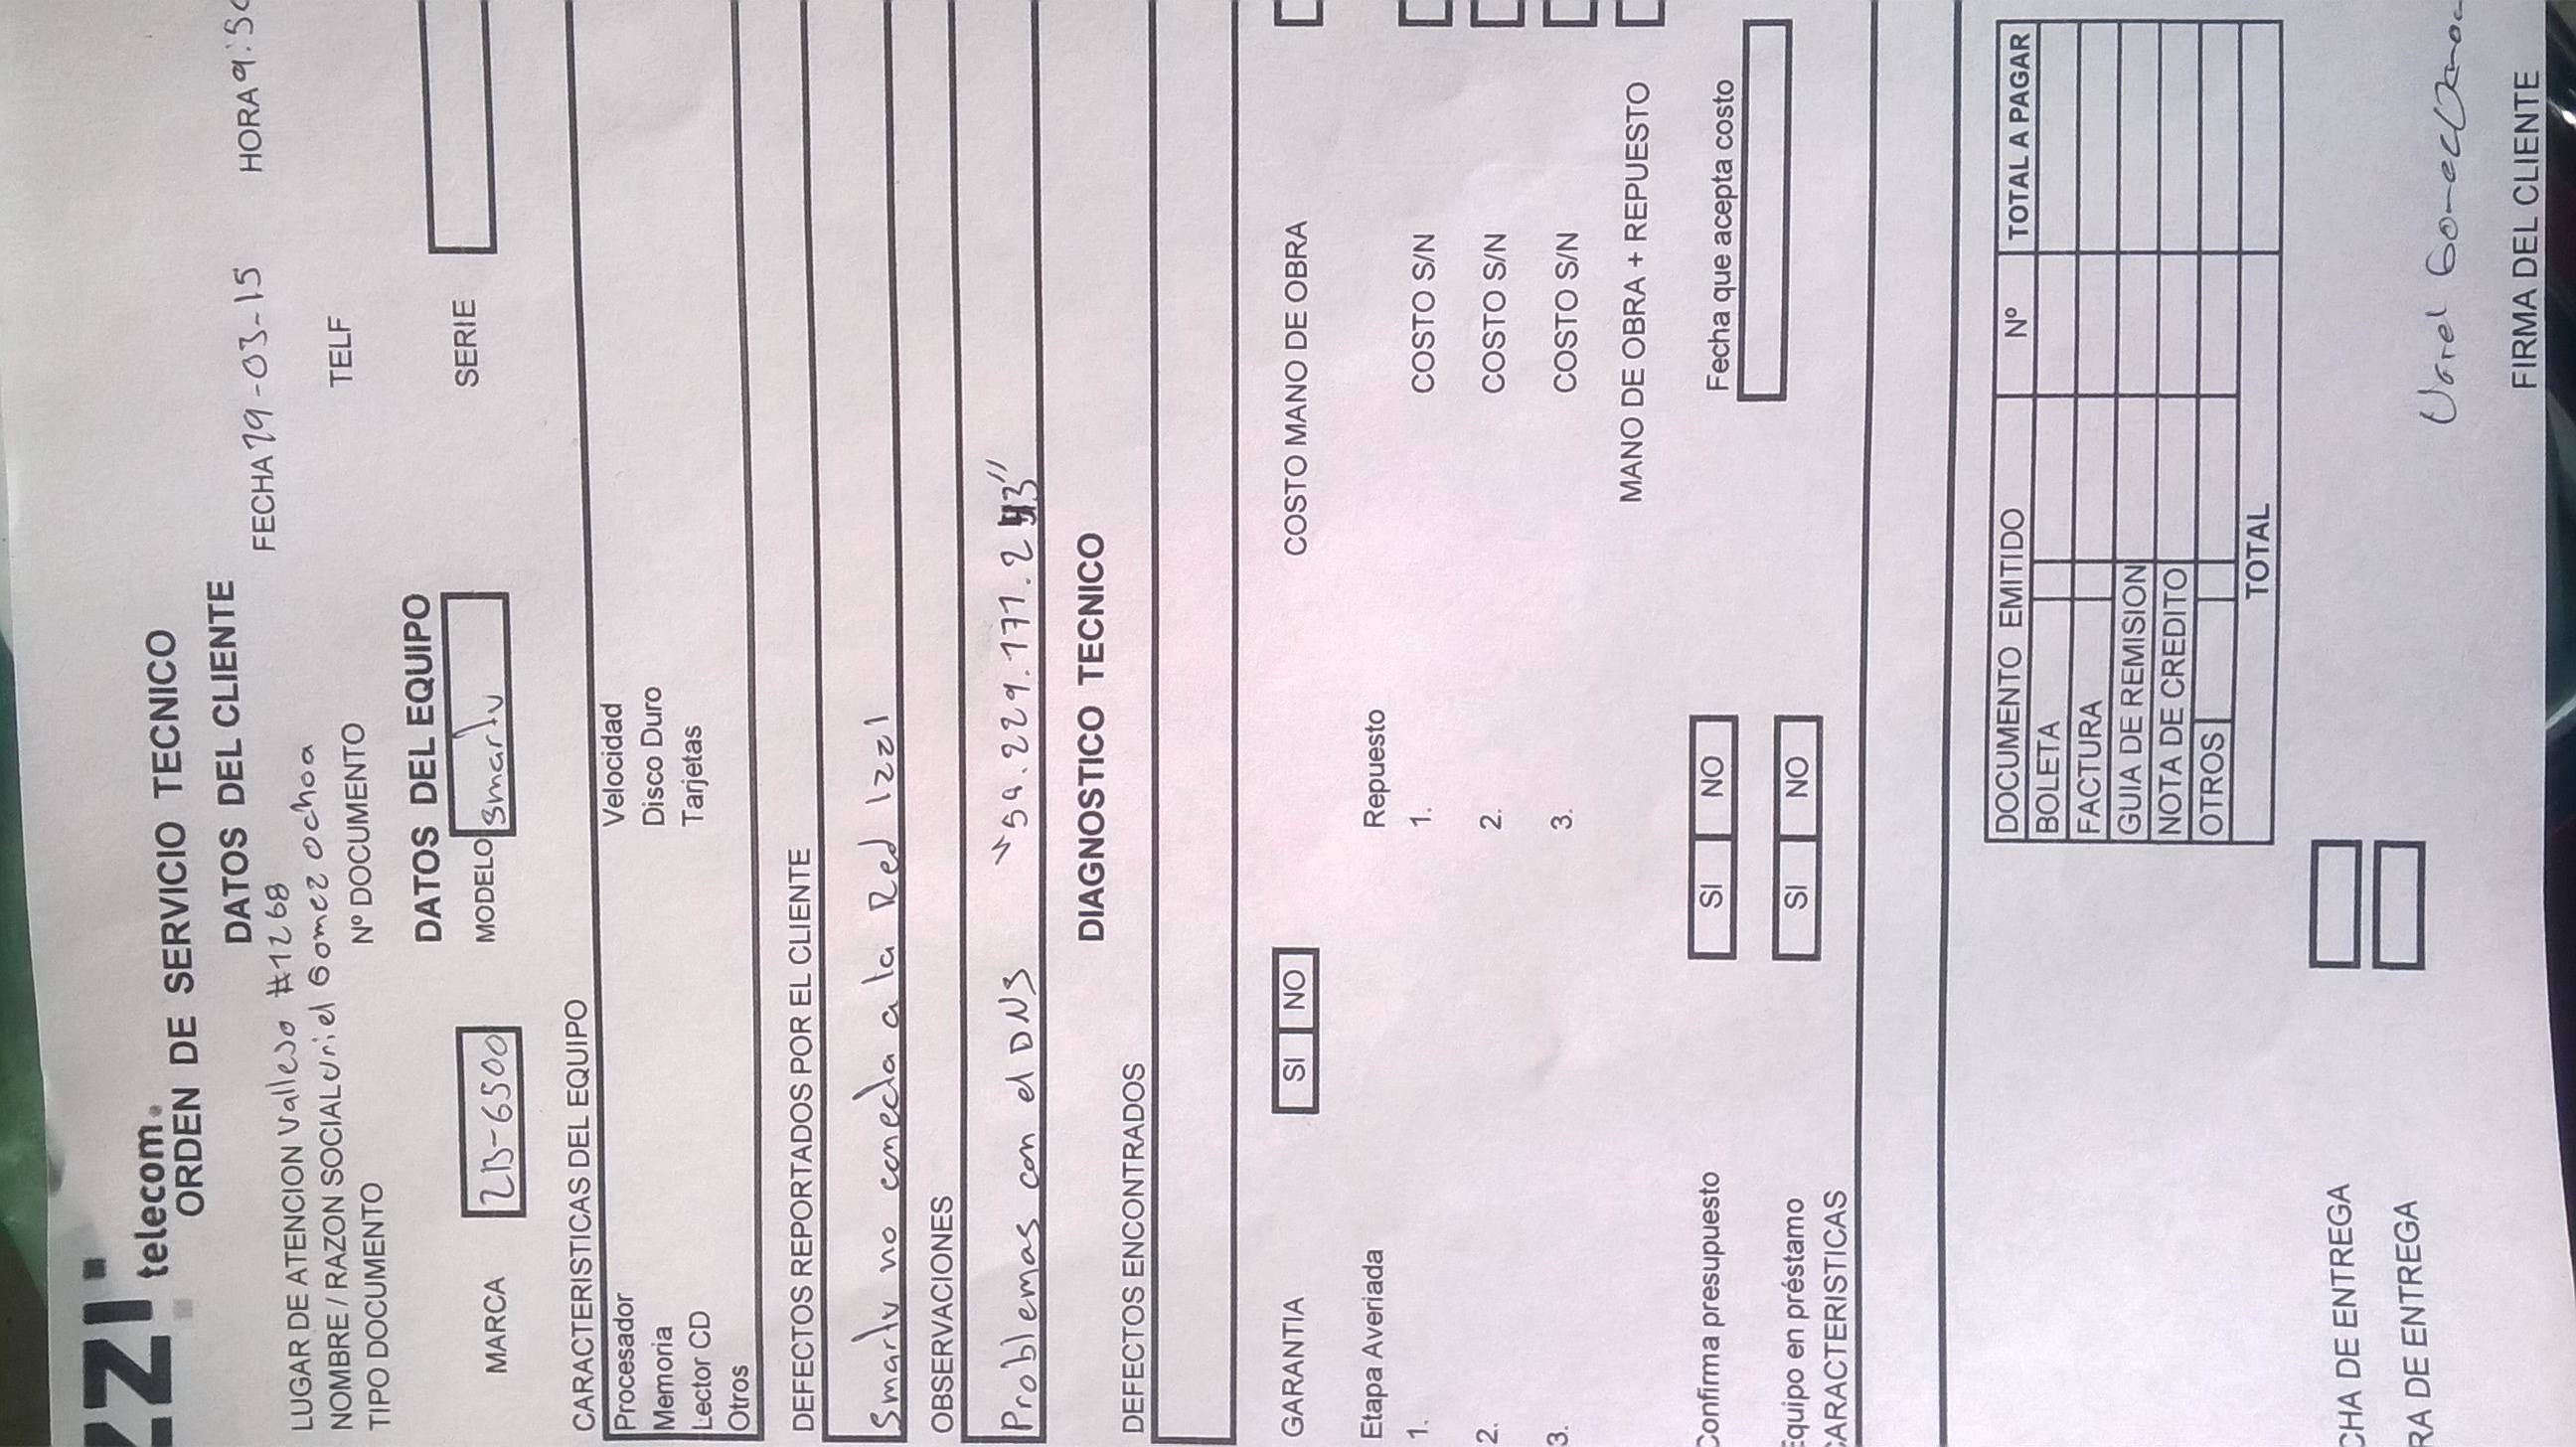 zzi
telecom.
ORDEN DE SERVICIO TECNICO
DATOS DEL CLIENTE
LUGAR DE ATENCION Vallejo #1268 FECHA 29-03-15 HORA 9:5
NOMBRE / RAZON SOCIAL Uriel Gomez Ochoa TELF
TIPO DOCUMENTO Nº DOCUMENTO
DATOS DEL EQUIPO
MARCA 2B-6500 MODELO Smartv SERIE
CARACTERISTICAS DEL EQUIPO
Procesador Velocidad
Memoria Disco Duro
Lector CD Tarjetas
Otros
DEFECTOS REPORTADOS POR EL CLIENTE
Smartv no conecta a la Red Izzi
OBSERVACIONES
Problemas con el DNS "59.229.177.243"
DIAGNOSTICO TECNICO
DEFECTOS ENCONTRADOS
GARANTIA SI NO COSTO MANO DE OBRA
Etapa Averiada Repuesto
1. 1. COSTO S/N
2. 2. COSTO S/N
3. 3. COSTO S/N
MANO DE OBRA + REPUESTO
Confirma presupuesto SI NO Fecha que acepta costo
Equipo en préstamo SI NO
CARACTERISTICAS
DOCUMENTO EMITIDO Nº TOTAL A PAGAR
BOLETA
FACTURA
GUIA DE REMISION
NOTA DE CREDITO
OTROS
TOTAL
CHA DE ENTREGA
RA DE ENTREGA
Uriel Gomez
FIRMA DEL CLIENTE